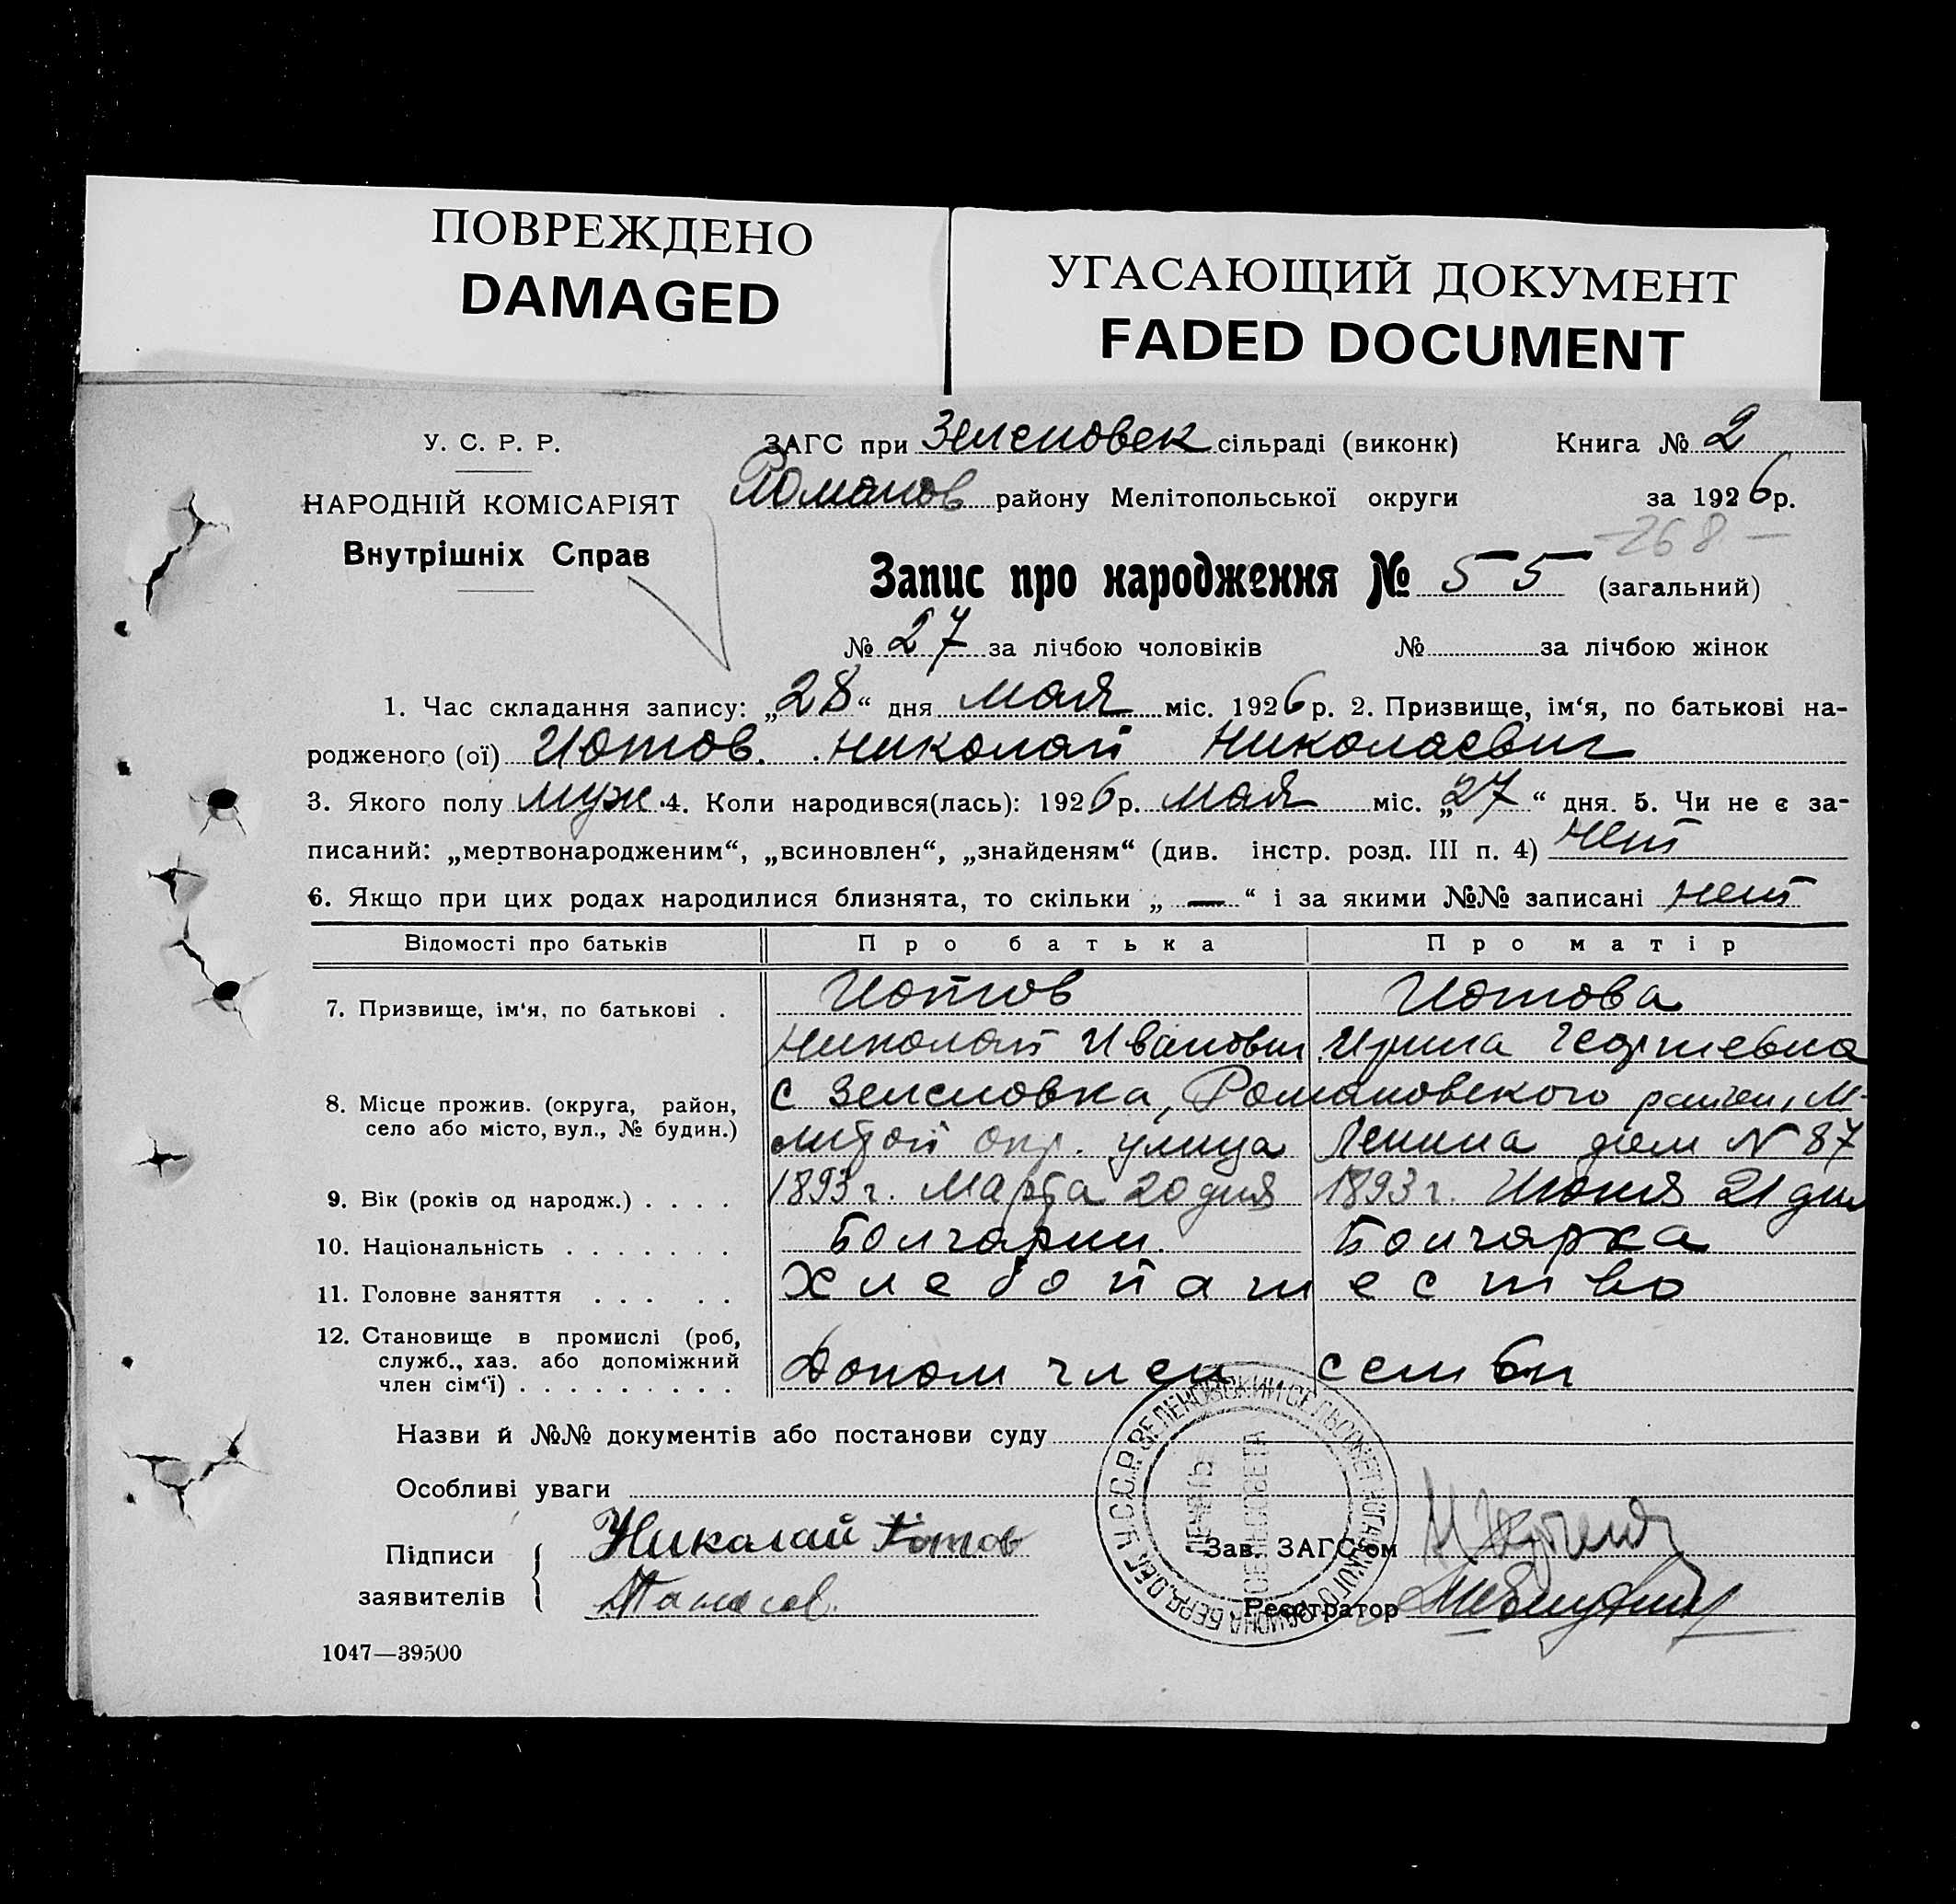 ПОВРЕЖДЕНО
DAMAGED
УГАСАЮЩИЙ ДОКУМЕНТ
FADED DOCUMENT
У. С. Р. Р.
НАРОДНІЙ КОМІСАРІЯТ
Внутрішніх Справ
ЗАГС при Зеленовск сільраді (виконк) Книга № 2
Романов району Мелітопольської округи за 1926р.
-268-
Запис про народження № 55 (загальний)
№ 27 за лічбою чоловіків № за лічбою жінок
1. Час складання запису: „28“ дня мая міс. 1926р. 2. Призвище, ім‘я, по батькові на-
родженого (ої) Иотов Николай Николаевич
3. Якого полу муж. 4. Коли народився(лась): 1926р. мая міс. „27“ дня. 5. Чи не є за-
писаний: „мертвонародженим“, „всиновлен“, „знайденям“ (див. інстр. розд. III п. 4) нет
6. Якщо при цих родах народилися близнята, то скільки „—“ і за якими №№ записані нет
Відомості про батьків Про батька Про матір
7. Призвище, ім‘я, по батькові . Иотов Иотова
Николай Иванович Ирина Георгиевна
8. Місце прожив. (округа, район, село або місто, вул., № будин.) с Зеленовка, Романовского района, М-
литой окр. улица Ленина дом N 87
9. Вік (років од народж.) . . . . 1893 г. Марта 20 дня 1893 г. Июня 21 дня
10. Національність . . . . . . . Болгарин. Болгарка
11. Головне заняття . . . . . Хлебопашество
12. Становище в промислі (роб, служб., хаз. або допоміжний член сім‘ї) . . . . . . . . . Допом член семьи
Назви й №№ документів або постанови суду
Особливі уваги
Підписи заявителів
Николай Иотов
Зав. ЗАГС‘ом
Реєстратор
У.С.С.Р. ЗЕЛЕНОВСКИЙ СЕЛЬСОВЕТ НОГАЙСКОГО РАЙОНА БЕРД.
ПЕЧАТЬ
1047—39500